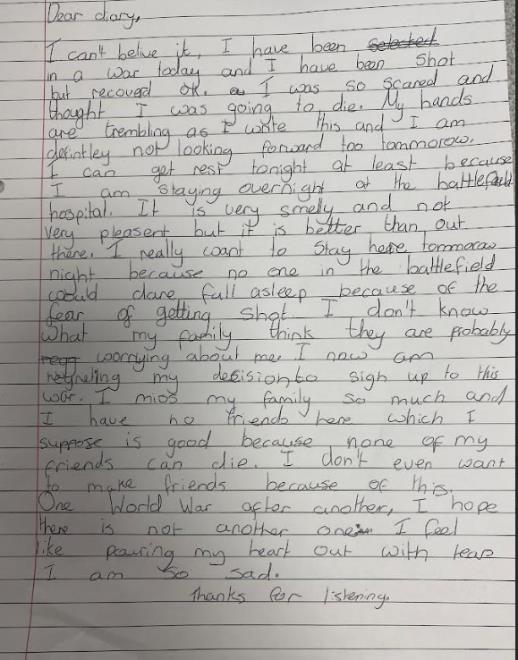 Dear diary,
I can't belive it, I have been selected
in a war today and I have been shot
but recoverd ok. I was so scared and
thought I was going to die. My hands
are trembling as I write this and I am
defintley not looking forward too tommorow.
I can get rest tonight at least because
I am staying overnight at the battlefield
hospital. It is very smely and not
very pleasent but it is better than out
there. I really want to stay here tommorow
night because no one in the battlefield
would dare fall asleep because of the
fear of getting shot. I don't know
what my family think they are probably
worrying about me. I now am
regreting my desision to sign up to this
war. I miss my family so much and
I have no friends here which I
suppose is good because none of my
friends can die. I don't even want
to make friends because of this.
One World War after another, I hope
there is not another one. I feel
like pouring my heart out with tears
I am so sad.
Thanks for listening.